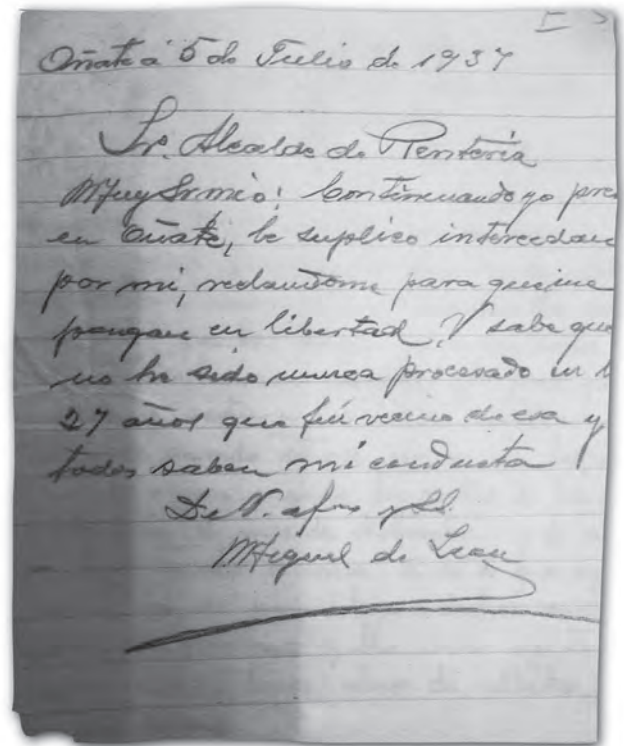 Oñate á 5 de Julio de 1937
Sr. Alcalde de Rentería
Muy Sr mio: Continuando yo pre
en Oñate, le suplico intercedan
por mi, reclandome para que me
pongan en libertad, V sabe que
no he sido nunca procesado en l
27 años que fui vecino de esa y
todos saben mi conducta
De V. afmo y
Miguel de Lean